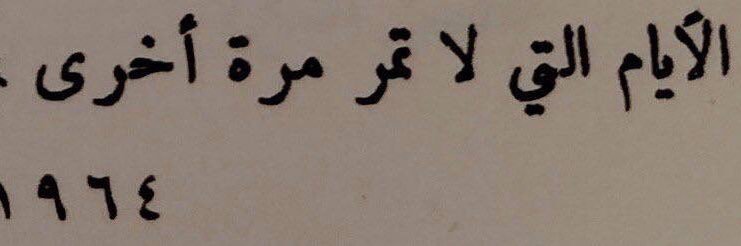 الأيام التي لا تمر مرة أخرى .
١٩٦٤